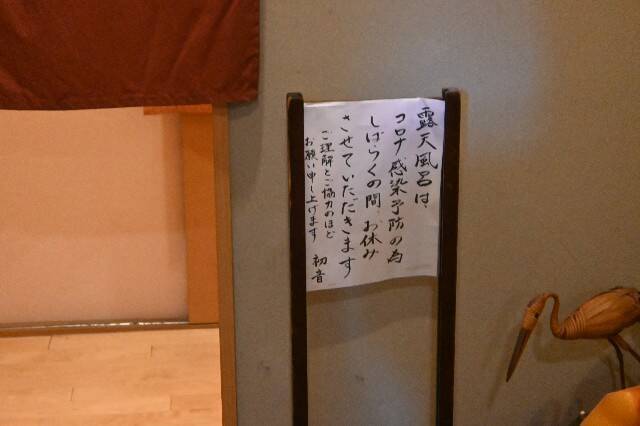 露天風呂は、
コロナ感染予防の為
しばらくの間、お休み
させていただきます
ご理解とご協力のほど
お願い申し上げます
初音